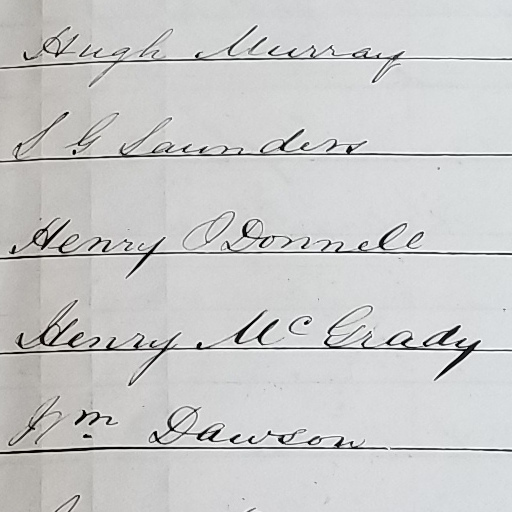 Hugh Murray
S G Saunders
Henry O'Donnell
Henry McGrady
Wm Dawson